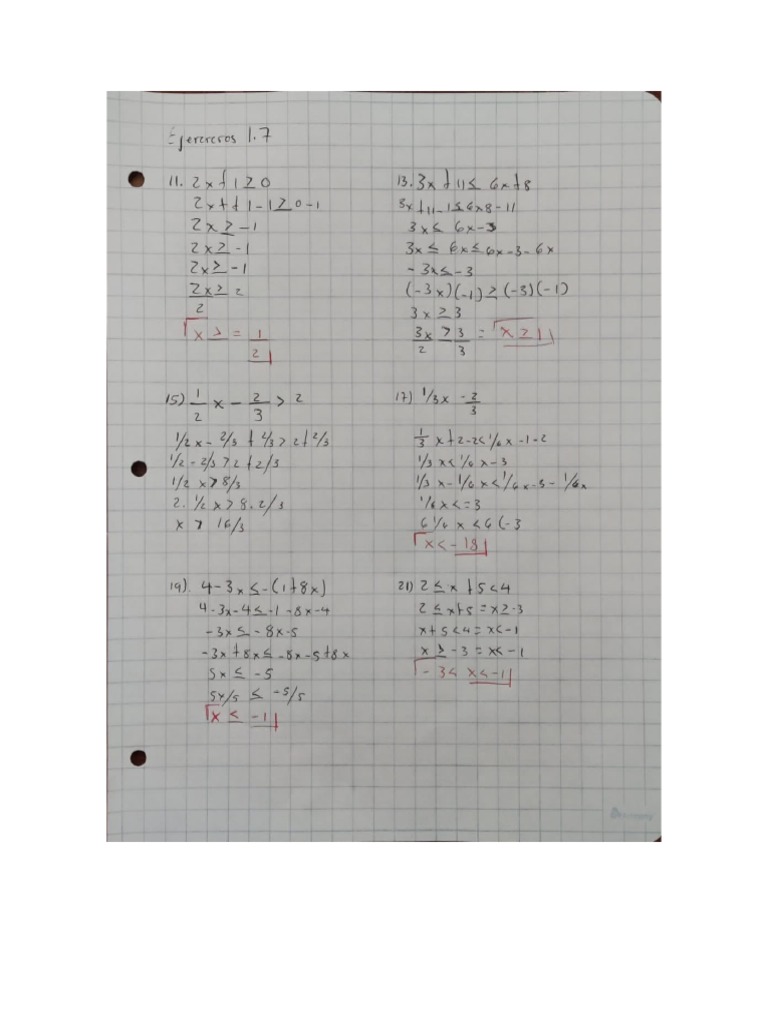 Ejercicios 1.7
11. 2x + 1 ≥ 0
2x + + 1 - 1 ≥ 0 - 1
2x ≥ - 1
2x ≥ - 1
2x ≥ - 1
2x ≥ 2
2
x ≥ = 1
2
13. 3x + 11 ≤ 6x + 8
3x + 11 - 1 ≤ 6x8 - 11
3x ≤ 6x - 3
3x ≤ 6x ≤ 6x - 3 - 6x
- 3x ≤ - 3
(-3x)(-1) ≥ (-3)(-1)
3x ≥ 3
3x > 3 = x ≥ 1
2 3
15) 1/2 x - 2/3 > 2
1/2 x - 2/3 + 2/3 > 2 + 2/3
1/2 - 2/3 > 2 + 2/3
1/2 x > 8/3
2. 1/2 x > 8. 2/3
x > 16/3
17) 1/3x - 2/3
1/3 x + 2 - 2 < 1/6 x - 1 - 2
1/3 x < 1/6 x - 3
1/3 x - 1/6 x < 1/6 x - 3 - 1/6x
1/6 x < = 3
6 1/6 x < 6 (- 3
x < - 18
19). 4 - 3x ≤ - (1 + 8x)
4 - 3x - 4 ≤ - 1 - 8x - 4
- 3x ≤ - 8x - 5
- 3x + 8x ≤ - 8x - 5 + 8x
5x ≤ - 5
5x/5 ≤ - 5/5
x ≤ - 1
21) 2 ≤ x + 5 < 4
2 ≤ x + 5 = x ≥ - 3
x + 5 < 4 = x < - 1
x ≥ - 3 = x < - 1
- 3 < x < - 1